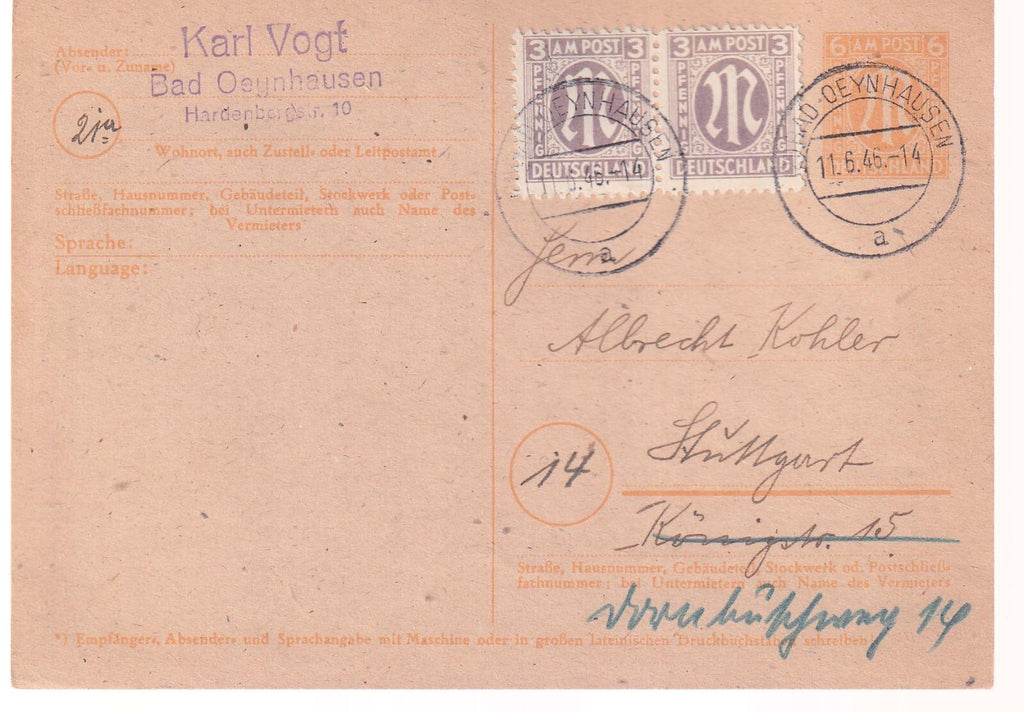 Absender:
(Vor- u. Zuname)
Karl Vogt
Bad Oeynhausen
Hardenbergstr. 10
21a
Wohnort, auch Zustell- oder Leitpostamt
Straße, Hausnummer, Gebäudeteil, Stockwerk oder Post-
schließfachnummer; bei Untermietern auch Name des
Vermieters
Sprache:
Language:
3 AM POST 3
PFENNIG PFENNIG
DEUTSCHLAND
3 AM POST 3
PFENNIG PFENNIG
DEUTSCHLAND
6 AM POST 6
DEUTSCHLAND
BAD OEYNHAUSEN
11.6.46.-14
a
BAD OEYNHAUSEN
11.6.46.-14
a
Herrn
Albrecht Kohler
14
Stuttgart
Königstr. 15
Straße, Hausnummer, Gebäudeteil, Stockwerk od. Postschließ-
fachnummer; bei Untermietern auch Name des Vermieters
Dornbuschweg 14
*) Empfänger-, Absender- und Sprachangabe mit Maschine oder in großen lateinischen Druckbuchstaben schreiben!